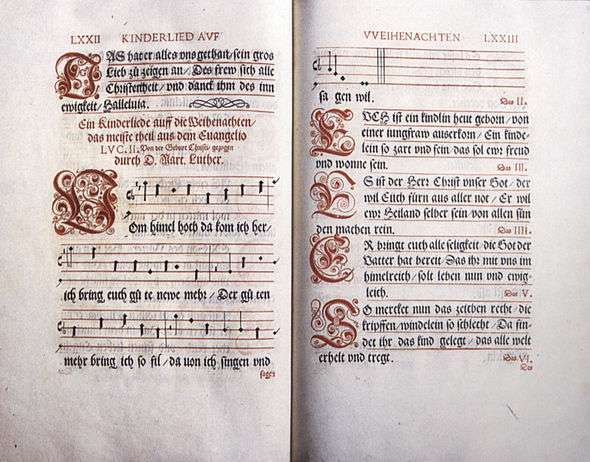 LXXII KINDERLIED AVF
DAS hat er alles vns gethan / sein gros
Lieb zů zeigen an / Des frew sich alle
Christenheit / vnd danck ihm des inn
ewigkeit / Halleluia.
Ein Kinderliede auff die Weihenachten /
das meiste theil aus dem Euangelio
LVC. II. Von der Geburt Christi / gezogen
durch D. Mart. Luther.
VOm himel hoch da kom ich her /
ich bring euch gůte newe mehr / Der gůten
mehr bring ich so fil / da von ich singen vnd
sagen
VVEIHENACHTEN LXXIII
sagen wil.
Das II.
EVCH ist ein kindlin heut geborn / von
einer iungfraw auserkorn / Ein kinde-
lein so zart vnd fein / das sol ewr freud
vnd wonne sein.
Das III.
ES ist der Herr Christ vnser Got / der
wil Euch fürn aus aller not / Er wil
ewr Heiland selber sein von allen sün
den machen rein.
Das IIII.
ER bringt euch alle seligkeit die Got der
Vatter hat bereit / Das ihr mit vns im
himelreich / solt leben nun vnd ewig-
leich.
Das V.
SO mercket nun das zeichen recht / die
kripffen / windelein so schlecht / Da fin-
det ihr das kind gelegt / das alle welt
erhelt vnd tregt.
Das VI.